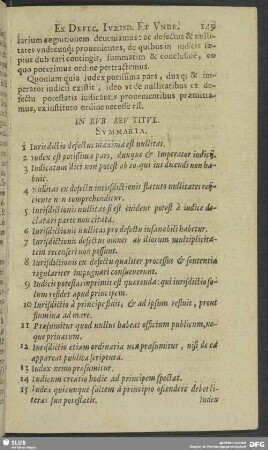 EX DEFEC. IVRISD. ET VNDE. 149
larium cognitionem deueniamus: ac defectus & nulli-
tates vndecunq; prouenientes, de quibus in iudicijs sæ-
pius dubitari contingit, summatim & conclusiue, eo
quo poterimus ordine pertractemus.
Quoniam quia iudex potissima pars, duxq; & im-
perator iudicij existit, ideo vt de nullitatibus ex de-
fectu potestatis iudicantis prouenientibus præmitta-
mus, ex instituto ordine necesse est.
IN RVB. SEV TITVL.
SVMMARIA.
1 Iurisdictio defectus maxima est nullitas.
2 Iudex est potissima pars, duxque & Imperator iudicij.
3 Iudicatum dici non potest ab eo qui ius dicendi non ha-
buit.
4 Nullitas ex defectu iurisdictionis statuto nullitates reij-
ciente non comprehenditur.
5 Iurisdictionis nullitas si est euidens potest à iudice de-
clarari parte non citata.
6 Iurisdictionis nullitas pro defectu insanabili habetur.
7 Iurisdictionis defectus omnes ob illorum multiplicita-
tem recenseri non possunt.
8 Iurisdictionis ex defectu qualiter processus & sententia
regulariter impugnari consueuerunt.
9 Iudicis potestas inprimis est quærenda: qui iurisdictio so-
lum residet apud principem.
10 Iurisdictio à principe fluit, & ad ipsum refluit, pront
flumina ad mare.
11 Præsumitur quod nullus habeat officium publicum, ne-
que priuatum.
12 Iurisdictio etiam ordinaria non præsumitur, nisi de ea
appareat publica scriptura.
13 Iudex nemo præsumitur.
14 Iudicum creatio hodie ad principem spectat.
15 Iudex quicunque saltem à principio ostendere debet li-
teras suæ potestatis.
Iudex
SLUB
DFG